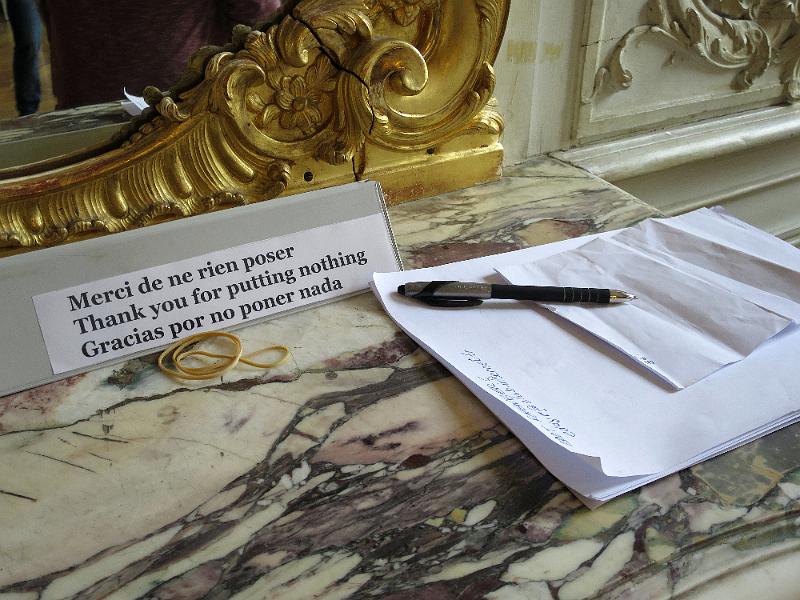 Merci de ne rien poser
Thank you for putting nothing
Gracias por no poner nada